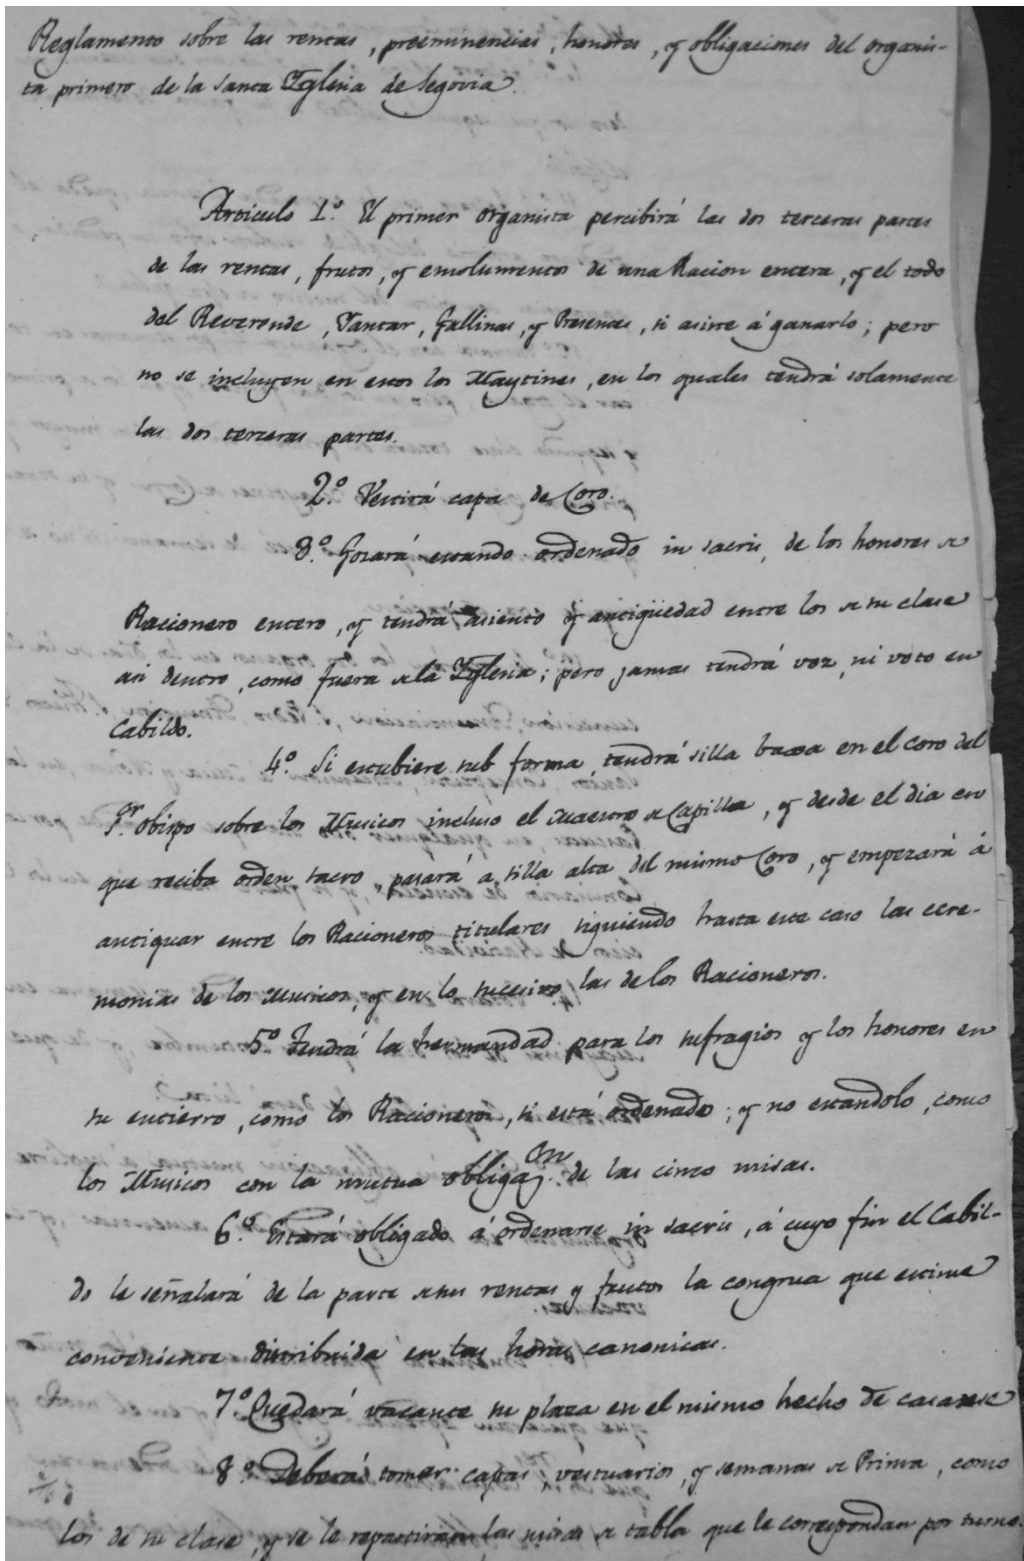 Reglamento sobre las rentas, preeminencias, honores, y obligaciones del organis-
ta primero de la Santa Yglesia de Segovia.
Articulo 1.º El primer organista percibirá las dos terceras partes
de las rentas, frutos, y emolumentos de una Racion entera, y el todo
del Reveronde, Yantar, Gallinas, y Presencias, si asiste á ganarlo; pero
no se incluyen en estos los Maytines, en los quales tendrá solamente
las dos terceras partes.
2.º Vestirá capa de Coro.
3.º Gozará estando ordenado in sacris, de los honores de
Racionero entero, y tendrá asiento y antigüedad entre los de su clase
asi dentro, como fuera de la Yglesia; pero jamas tendrá voz, ni voto en
Cabildo.
4.º Si estubiere sub forma, tendrá silla baxa en el coro del
Sr. obispo sobre los Musicos incluso el Maestro de Capilla, y desde el dia en
que reciba orden sacro, pasará a silla alta del mismo Coro, y empezará á
antiguar entre los Racioneros titulares siguiendo hasta este caso las cere-
monias de los Musicos, y en lo sucesivo las de los Racioneros.
5.º Tendrá la hermandad para los sufragios y los honores en
su entierro, como los Racioneros, si está ordenado; y no estandolo, como
los Musicos con la mutua obligaon. de las cinco misas.
6.º Estará obligado á ordenarse in sacris, á cuyo fin el Cabil-
do le señalará de la parte de sus rentas y frutos la congrua que estime
conveniente distribuida en las horas canonicas.
7.º Quedará vacante su plaza en el mismo hecho de casarse
8.º Deberá tomar capas, vestuarios, y semanas de Prima, como
los de su clase, y se le repartiran las misas de tabla que le correspondan por turno.